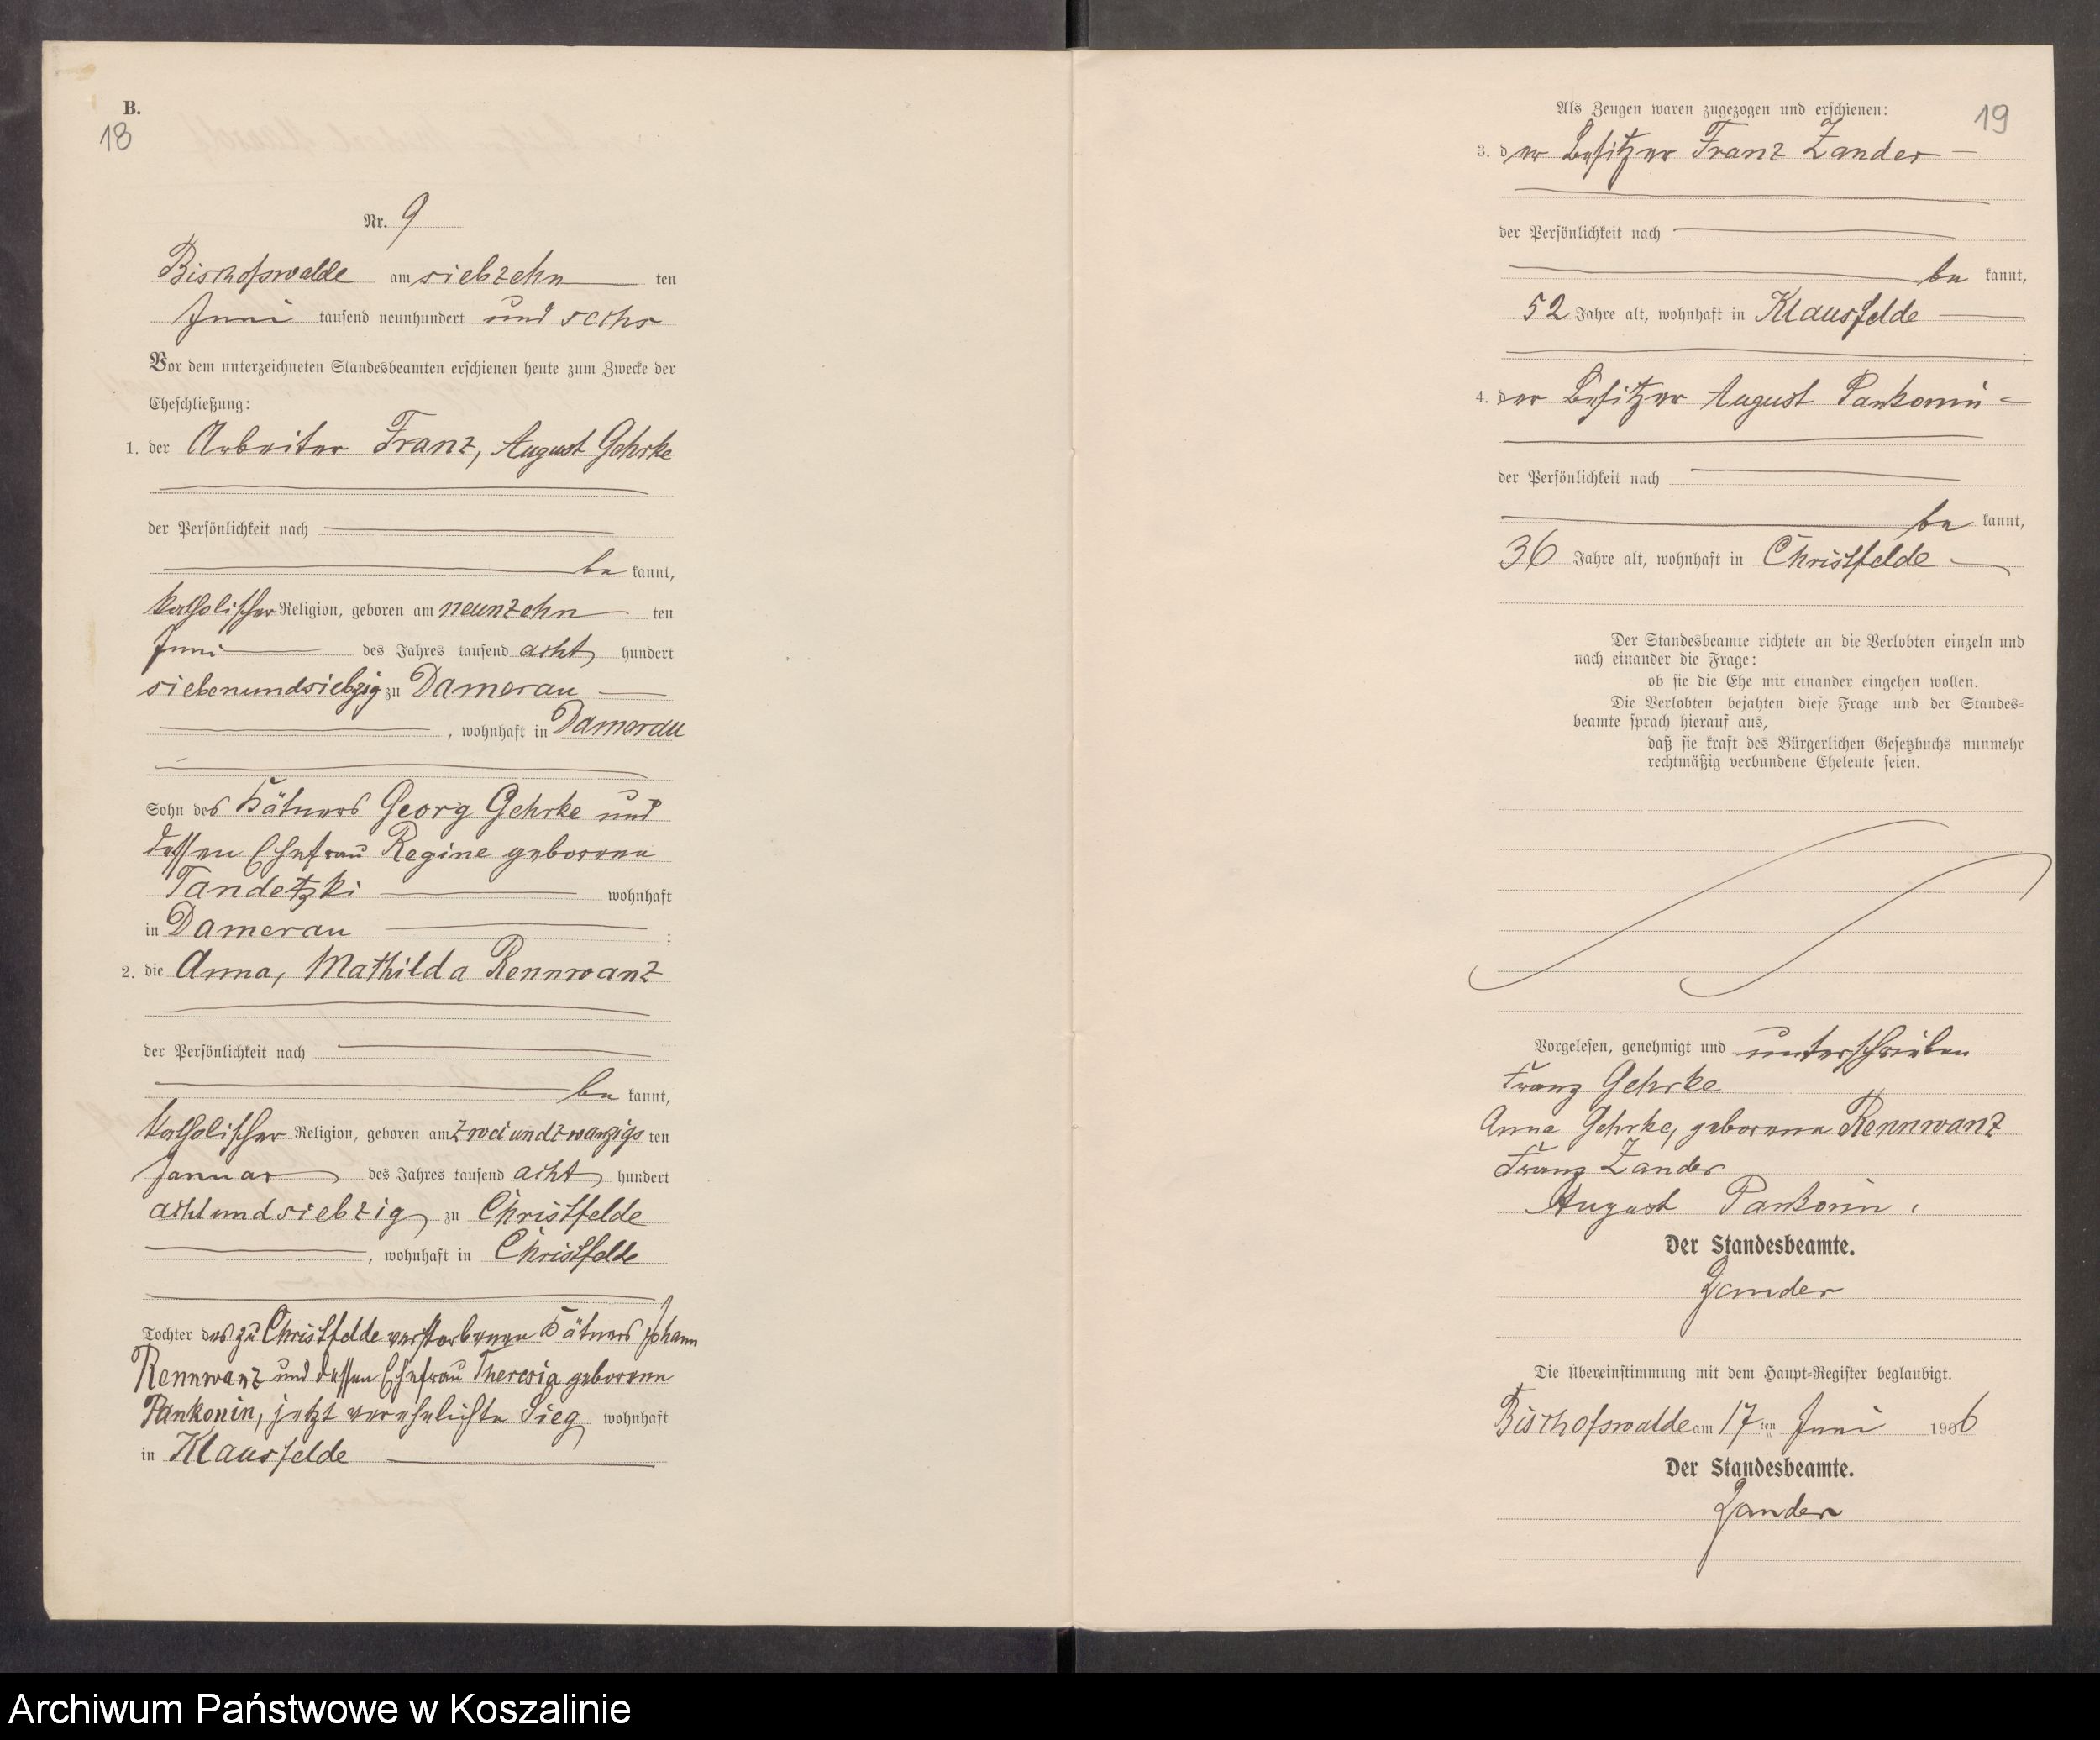 B.
18
Nr. 9
Bischofswalde am siebzehn ten
Juni tausend neunhundert und sechs
Vor dem unterzeichneten Standesbeamten erschienen heute zum Zwecke der
Eheschließung:
1. der Arbeiter Franz, August Gehrke
der Persönlichkeit nach
be kannt,
katholischer Religion, geboren am neunzehn ten
Juni des Jahres tausend acht hundert
siebenundsiebzig zu Damerau
, wohnhaft in Damerau
Sohn des Kätners Georg Gehrke und
dessen Ehefrau Regine geborene
Tandetzki wohnhaft
in Damerau ;
2. die Anna, Mathilda Rennwanz
der Persönlichkeit nach
be kannt,
katholischer Religion, geboren am zweiundzwanzigs ten
Januar des Jahres tausend acht hundert
achtundsiebzig zu Christfelde
, wohnhaft in Christfelde
Tochter des zu Christfelde verstorbenen Kätners Johann
Rennwanz und dessen Ehefrau Theresia geborene
Pankonin, jetzt verehelichte Sieg wohnhaft
in Klausfelde
Als Zeugen waren zugezogen und erschienen:
19
3. der Besitzer Franz Zander
der Persönlichkeit nach
be kannt,
52 Jahre alt, wohnhaft in Klausfelde
;
4. der Besitzer August Pankonin
der Persönlichkeit nach
be kannt,
36 Jahre alt, wohnhaft in Christfelde
Der Standesbeamte richtete an die Verlobten einzeln und
nach einander die Frage:
ob sie die Ehe mit einander eingehen wollen.
Die Verlobten bejahten diese Frage und der Standes=
beamte sprach hierauf aus,
daß sie kraft des Bürgerlichen Gesetzbuchs nunmehr
rechtmäßig verbundene Eheleute seien.
Vorgelesen, genehmigt und unterschrieben
Franz Gehrke
Anna Gehrke, geborene Rennwanz
Franz Zander
August Pankonin.
Der Standesbeamte.
Zander
Die Übereinstimmung mit dem Haupt=Register beglaubigt.
Bischofswalde am 17 ten Juni 1906
Der Standesbeamte.
Zander
Archiwum Państwowe w Koszalinie